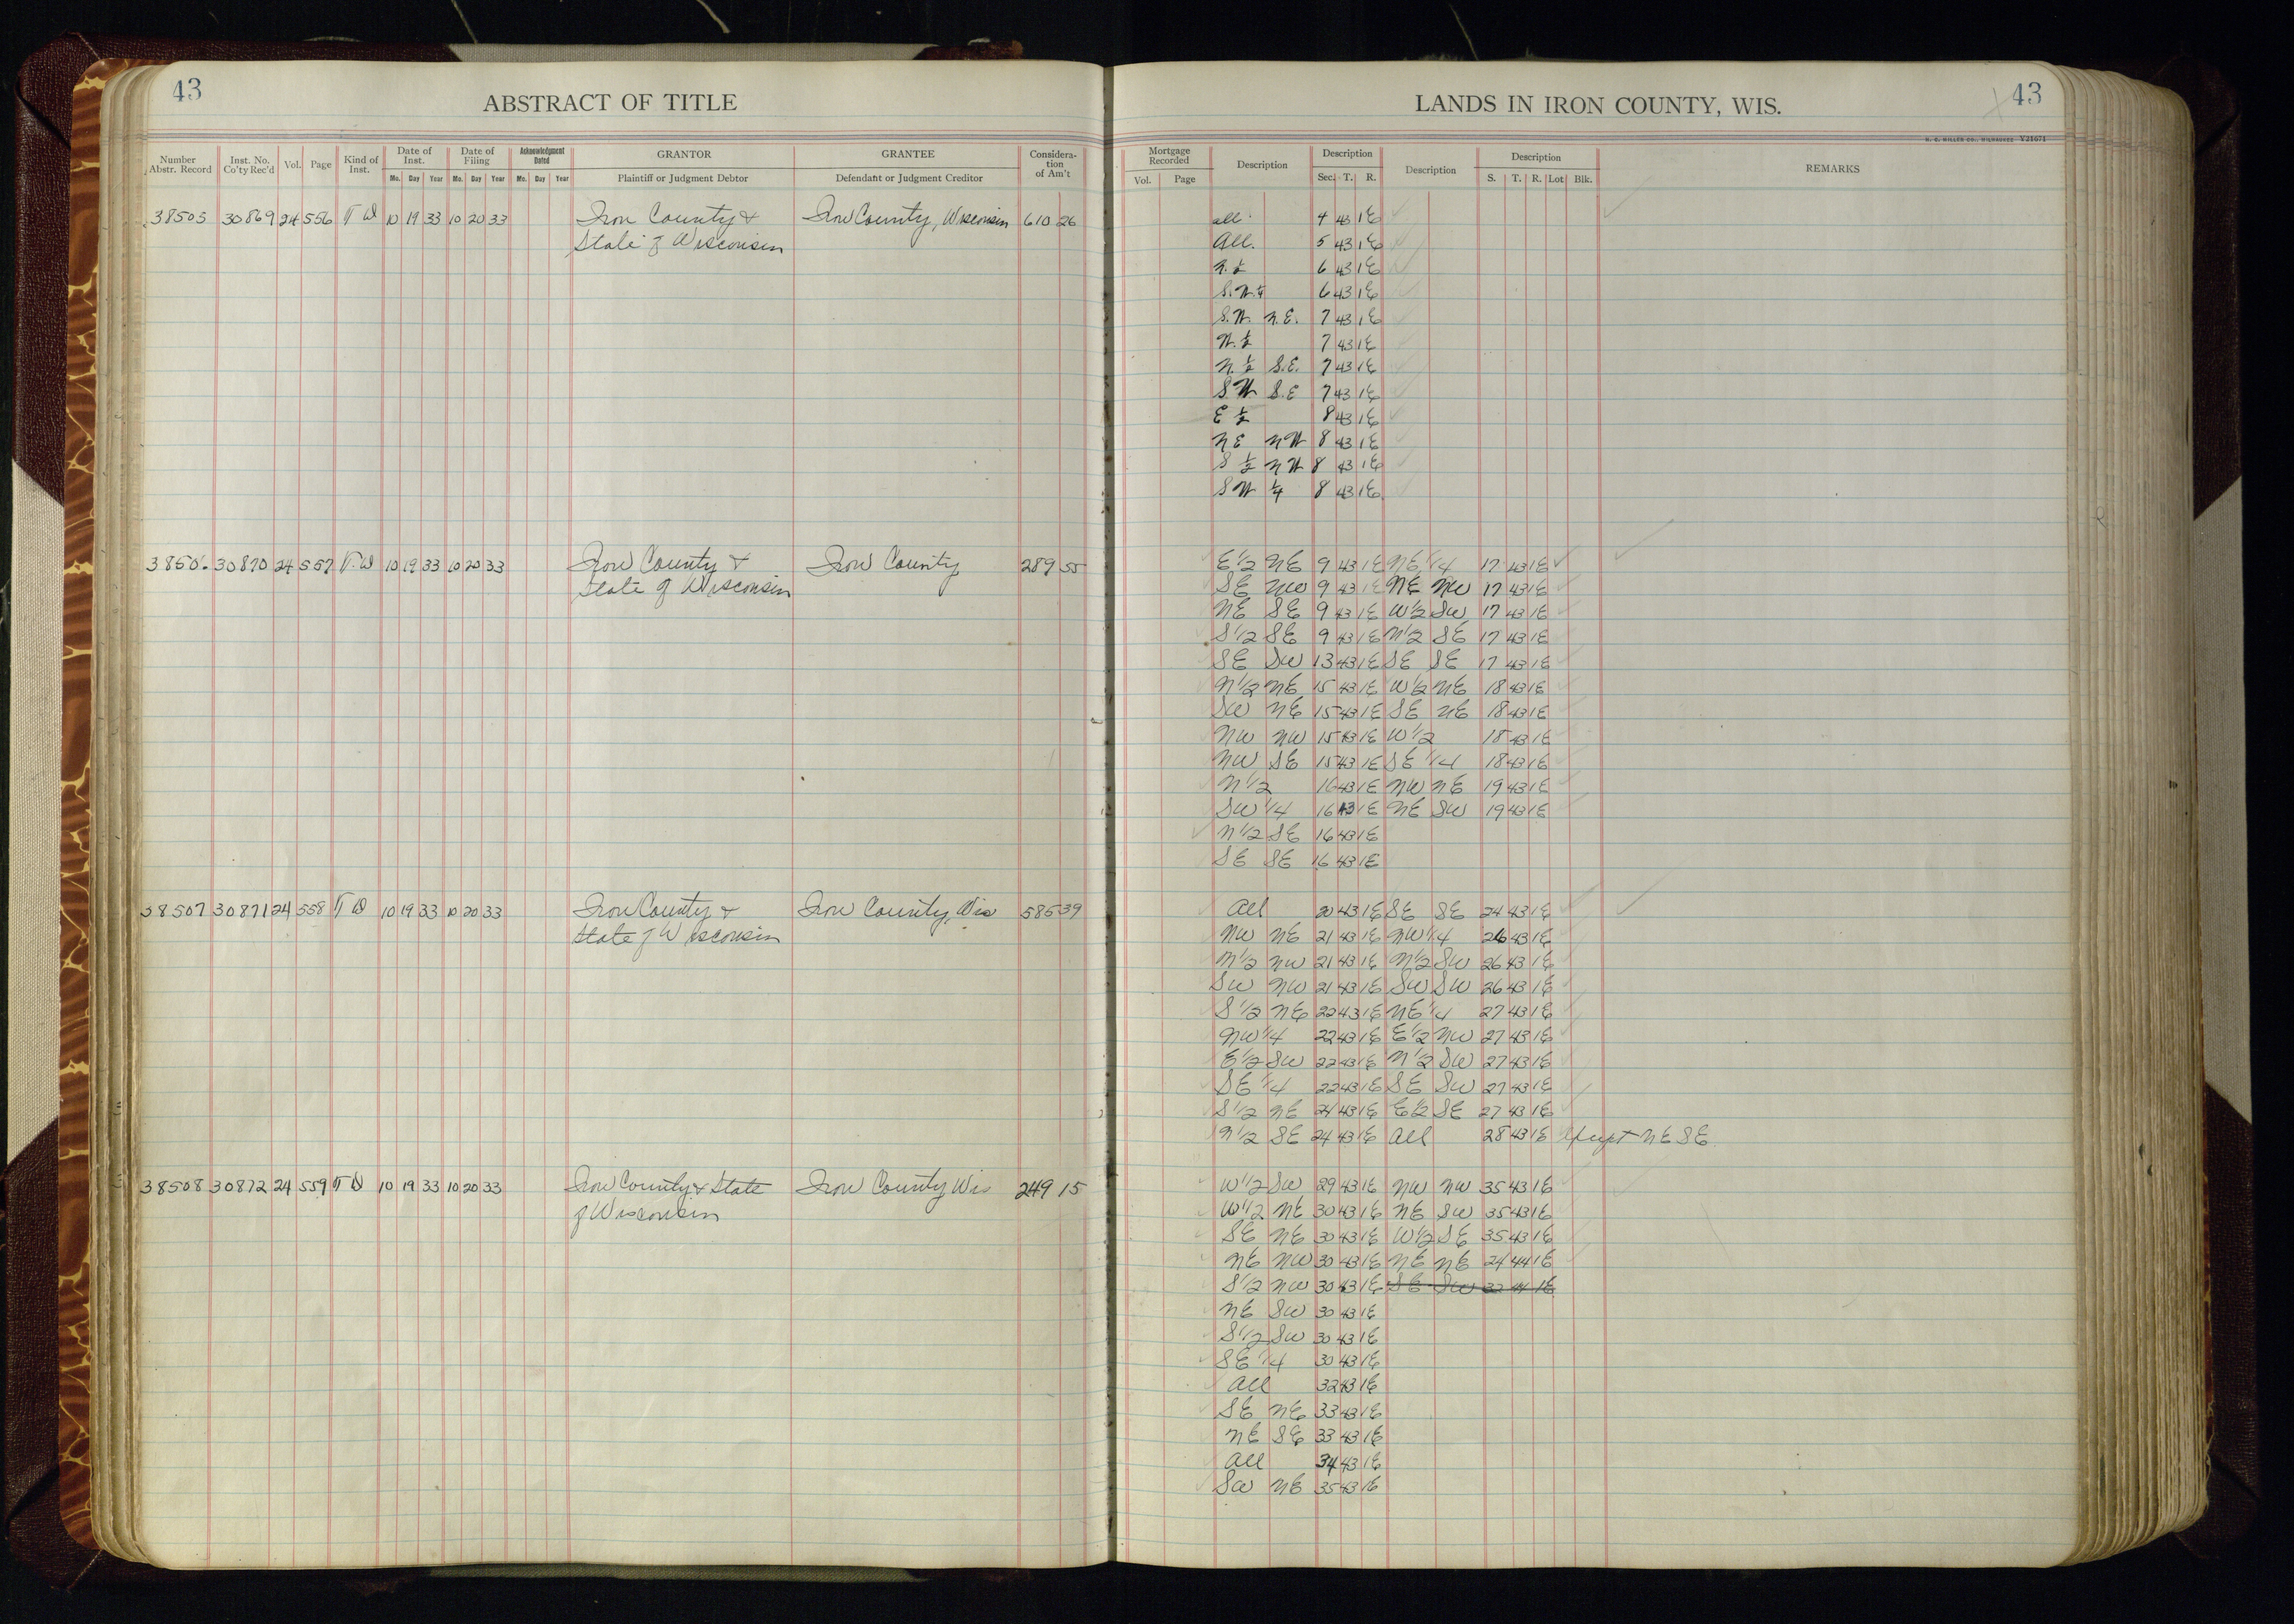 43
ABSTRACT OF TITLE
LANDS IN IRON COUNTY, WIS.
43
H. C. MILLER CO., MILWAUKEE Y21671
Number Abstr. Record Inst. No. Co'ty Rec'd Vol. Page Kind of Inst. Date of Inst. Mo. Day Year Date of Filing Mo. Day Year Acknowledgment Dated Mo. Day Year GRANTOR Plaintiff or Judgment Debtor GRANTEE Defendant or Judgment Creditor Considera-tion of Am't
Mortgage Recorded Vol. Page Description Description Sec. T. R. Description Description S. T. R. Lot Blk. REMARKS
38505 30869 24 556 T W 10 19 33 10 20 33 Iron County & Iron County, Wisconsin 610 26
State of Wisconsin
all 4 43 1E
All. 5 43 1E
N. ½ 6 43 1E
S.W ¼ 6 43 1E
S.W. N.E. 7 43 1E
W. ½ 7 43 1E
N. ½ S.E. 7 43 1E
S.W S.E 7 43 1E
E ½ 8 43 1E
NE NW 8 43 1E
S ½ NW 8 43 1E
SW ¼ 8 43 1E
38506 30870 24 557 T.W 10 19 33 10 20 33 Iron County & Iron County 289 55
State of Wisconsin
E 1/2 NE 9 43 1E NE 1/4 17 43 1E
SE NW 9 43 1E NE NW 17 43 1E
NE SE 9 43 1E W 1/2 SW 17 43 1E
S 1/2 SE 9 43 1E N 1/2 SE 17 43 1E
SE SW 13 43 1E SE SE 17 43 1E
N 1/2 NE 15 43 1E W 1/2 NE 18 43 1E
SW NE 15 43 1E SE NE 18 43 1E
NW NW 15 43 1E W 1/2 18 43 1E
NW SE 15 43 1E SE 1/4 18 43 1E
N 1/2 16 43 1E NW NE 19 43 1E
SW 1/4 16 43 1E NE SW 19 43 1E
N 1/2 SE 16 43 1E
SE SE 16 43 1E
38507 30871 24 558 T W 10 19 33 10 20 33 Iron County & Iron County, Wis 585 39
State of Wisconsin
All 20 43 1E SE SE 24 43 1E
NW NE 21 43 1E NW 1/4 26 43 1E
N 1/2 NW 21 43 1E N 1/2 SW 26 43 1E
SW NW 21 43 1E SW SW 26 43 1E
S 1/2 NE 22 43 1E NE 1/4 27 43 1E
NW 1/4 22 43 1E E 1/2 NW 27 43 1E
E 1/2 SW 22 43 1E N 1/2 SW 27 43 1E
SE 1/4 22 43 1E SE SW 27 43 1E
S 1/2 NE 24 43 1E E 1/2 SE 27 43 1E
N 1/2 SE 24 43 1E All 28 43 1E Except NE SE
38508 30872 24 559 T D 10 19 33 10 20 33 Iron County & State Iron County Wis 249 15
of Wisconsin
W 1/2 SW 29 43 1E NW NW 35 43 1E
W 1/2 NE 30 43 1E NE SW 35 43 1E
SE NE 30 43 1E W 1/2 SE 35 43 1E
NE NW 30 43 1E NE NE 24 44 1E
S 1/2 NW 30 43 1E SE SW 32 44 1E
NE SW 30 43 1E
S 1/2 SW 30 43 1E
SE 1/4 30 43 1E
All 32 43 1E
SE NE 33 43 1E
NE SE 33 43 1E
All 34 43 1E
SW NE 35 43 1E